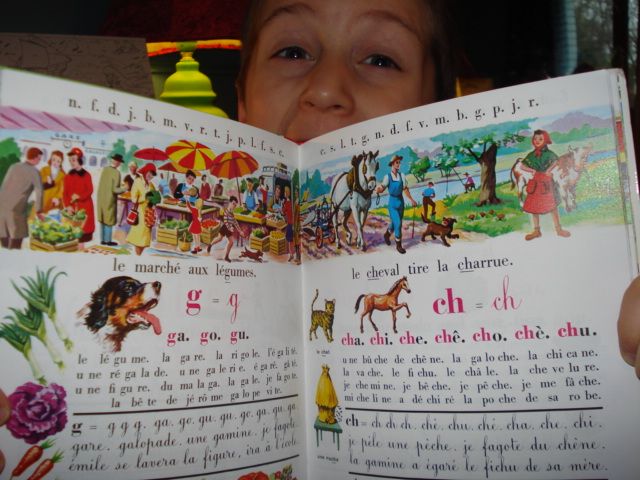 n. f. d. j. b. m. v. r. t. j. p. l. f. s. c.
GARE
le marché aux légumes.
g = g
ga. go. gu.
le lé gu me. la ga re. la ri go le. l'é ga li té.
u ne ré ga la de. u ne ga le ri e. é ga ré. gâ té.
u ne fi gu re. du ma la ga. la ga le. je fa go te.
la bê te de jé rô me ga lo pe vi te.
g = g g g. ga. go. gu. gu. go. ga. gu. ga.
gare. galopade. une gamine. je fagote.
émile se lavera la figure, ira à l'école.
c. s. l. t. g. n. d. f. v. m. b. g. p. j. r.
le cheval tire la charrue.
ch = ch
le chat
cha. chi. che. chê. cho. chè. chu.
u ne bû che de chê ne. la ga lo che. la chi ca ne.
la va che. le fi chu. le châ le. la che ve lu re.
je che mi ne. je bê che. je pê che. je me fâ che.
mi che li ne a dé chi ré la po che de sa ro be.
une ruche
ch = ch ch ch. chi. chu. chi. cha. che. chi.
je pèle une pêche. je fagote du chêne.
la gamine a égaré le fichu de sa mère.